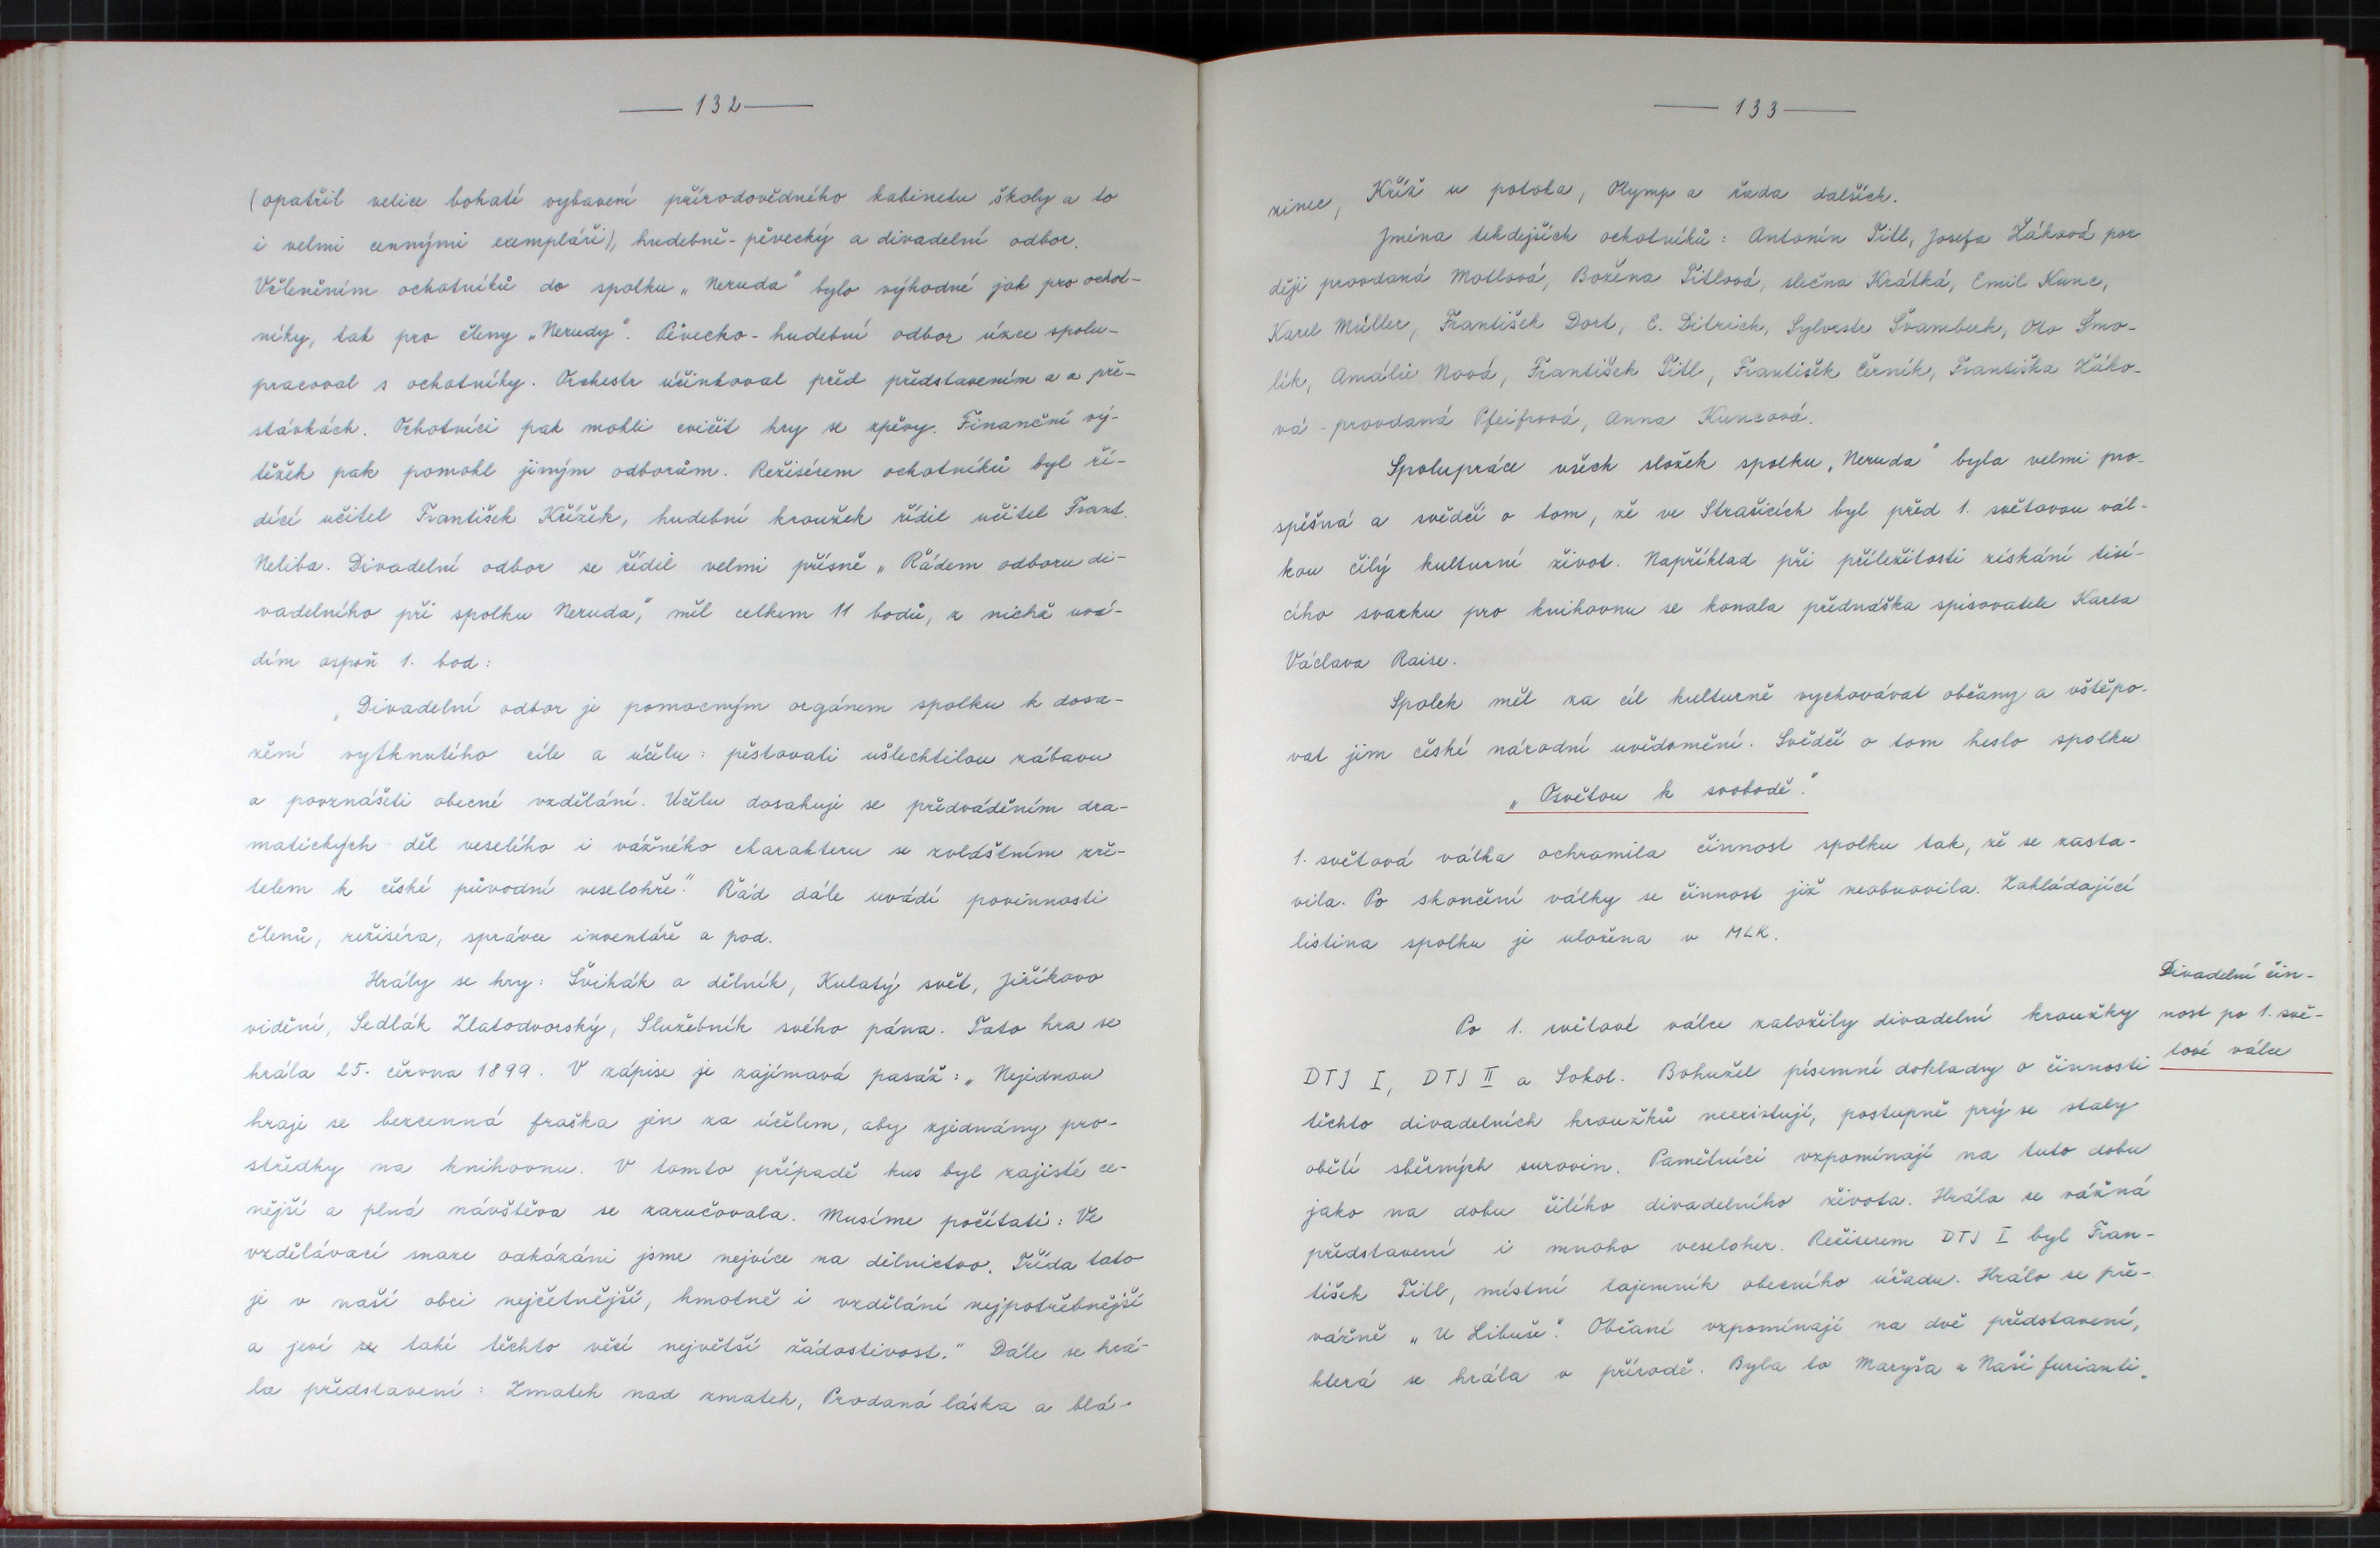 132
(opatřil velice bohaté vybavení přírodovědného kabinetu školy a to
i velmi cennými exempláři), hudebně-pěvecký a divadelní odbor.
Včleněním ochotníků do spolku „Neruda" bylo výhodné jak pro ochot-
níky, tak pro členy „Nerudy". Pěvecko-hudební odbor úzce spolu-
pracoval s ochotníky. Orchestr účinkoval před představením a o pře-
stávkách. Ochotníci pak mohli cvičit hry se zpěvy. Finanční vý-
těžek pak pomohl jiným odborům. Režisérem ochotníků byl ří-
dící učitel František Křížek, hudební kroužek řídil učitel Frant.
Neliba. Divadelní odbor se řídil velmi přísně „Řádem odboru di-
vadelního při spolku Neruda", měl celkem 11 bodů, z nichž uvá-
dím aspoň 1. bod:
„Divadelní odbor je pomocným orgánem spolku k dosa-
žení vytknutého cíle a účelu: pěstovati ušlechtilou zábavu
a povznášeti obecné vzdělání. Účelu dosahuje se předváděním dra-
matických děl veselého i vážného charakteru se zvláštním zře-
telem k české původní veselohře." Řád dále uvádí povinnosti
členů, režiséra, správce inventáře a pod.
Hrály se hry: Švihák a dělník, Kulatý svět, Jiříkovo
vidění, Sedlák Zlatodvorský, Služebník svého pána. Tato hra se
hrála 25. června 1899. V zápise je zajímavá pasáž: „Nejednou
hraje se bezcenná fraška jen za účelem, aby zjednány pro-
středky na knihovnu. V tomto případě kus byl zajisté ce-
nější a plná návštěva se zaručovala. Musíme počítati: Ve
vzdělávací snaze odkázáni jsme nejvíce na dělnictvo. Třída tato
je v naší obci nejčetnější, hmotně i vzdělání nejpotřebnější
a jeví se také těchto věcí největší žádostivost." Dále se hrá-
la představení: Zmatek nad zmatek, Prodaná láska a blá-
133
zinec, Kříž u potoka, Olymp a řada dalších.
Jména tehdejších ochotníků: Antonín Titl, Josefa Žáková poz
ději provdaná Motlová, Božena Titlová, slečna Krátká, Emil Kunc,
Karel Müller, František Dort, E. Ditrich, Sylvestr Švamberk, Oto Smo-
lík, Amálie Nová, František Titl, František Černík, Františka Žáko-
vá - provdaná Pfeifrová, Anna Kuncová.
Spolupráce všech složek spolku „Neruda" byla velmi pro-
spěšná a svědčí o tom, že ve Strašicích byl před 1. světovou vál-
kou čilý kulturní život. Například při příležitosti získání tisí-
cího svazku pro knihovnu se konala přednáška spisovatele Karla
Václava Raise.
Spolek měl za cíl kulturně vychovávat občany a vštěpo-
vat jim české národní uvědomění. Svědčí o tom heslo spolku
„Osvětou k svobodě."
1. světová válka ochromila činnost spolku tak, že se zasta-
vila. Po skončení války se činnost již neobnovila. Zakládající
listina spolku je uložena v MLK.
Divadelní čin-
nost po 1. svě-
tové válce
Po 1. světové válce založily divadelní kroužky
DTJ I, DTJ II a Sokol. Bohužel písemné doklady o činnosti
těchto divadelních kroužků neexistují, postupně prý se staly
obětí sběrných surovin. Pamětníci vzpomínají na tuto dobu
jako na dobu čilého divadelního života. Hrála se vážná
představení i mnoho veseloher. Režiserem DTJ I byl Fran-
tišek Titl, místní tajemník obecního úřadu. Hrálo se pře-
vážně „U Libuše". Občané vzpomínají na dvě představení,
která se hrála v přírodě. Byla to Maryša a Naši furianti.